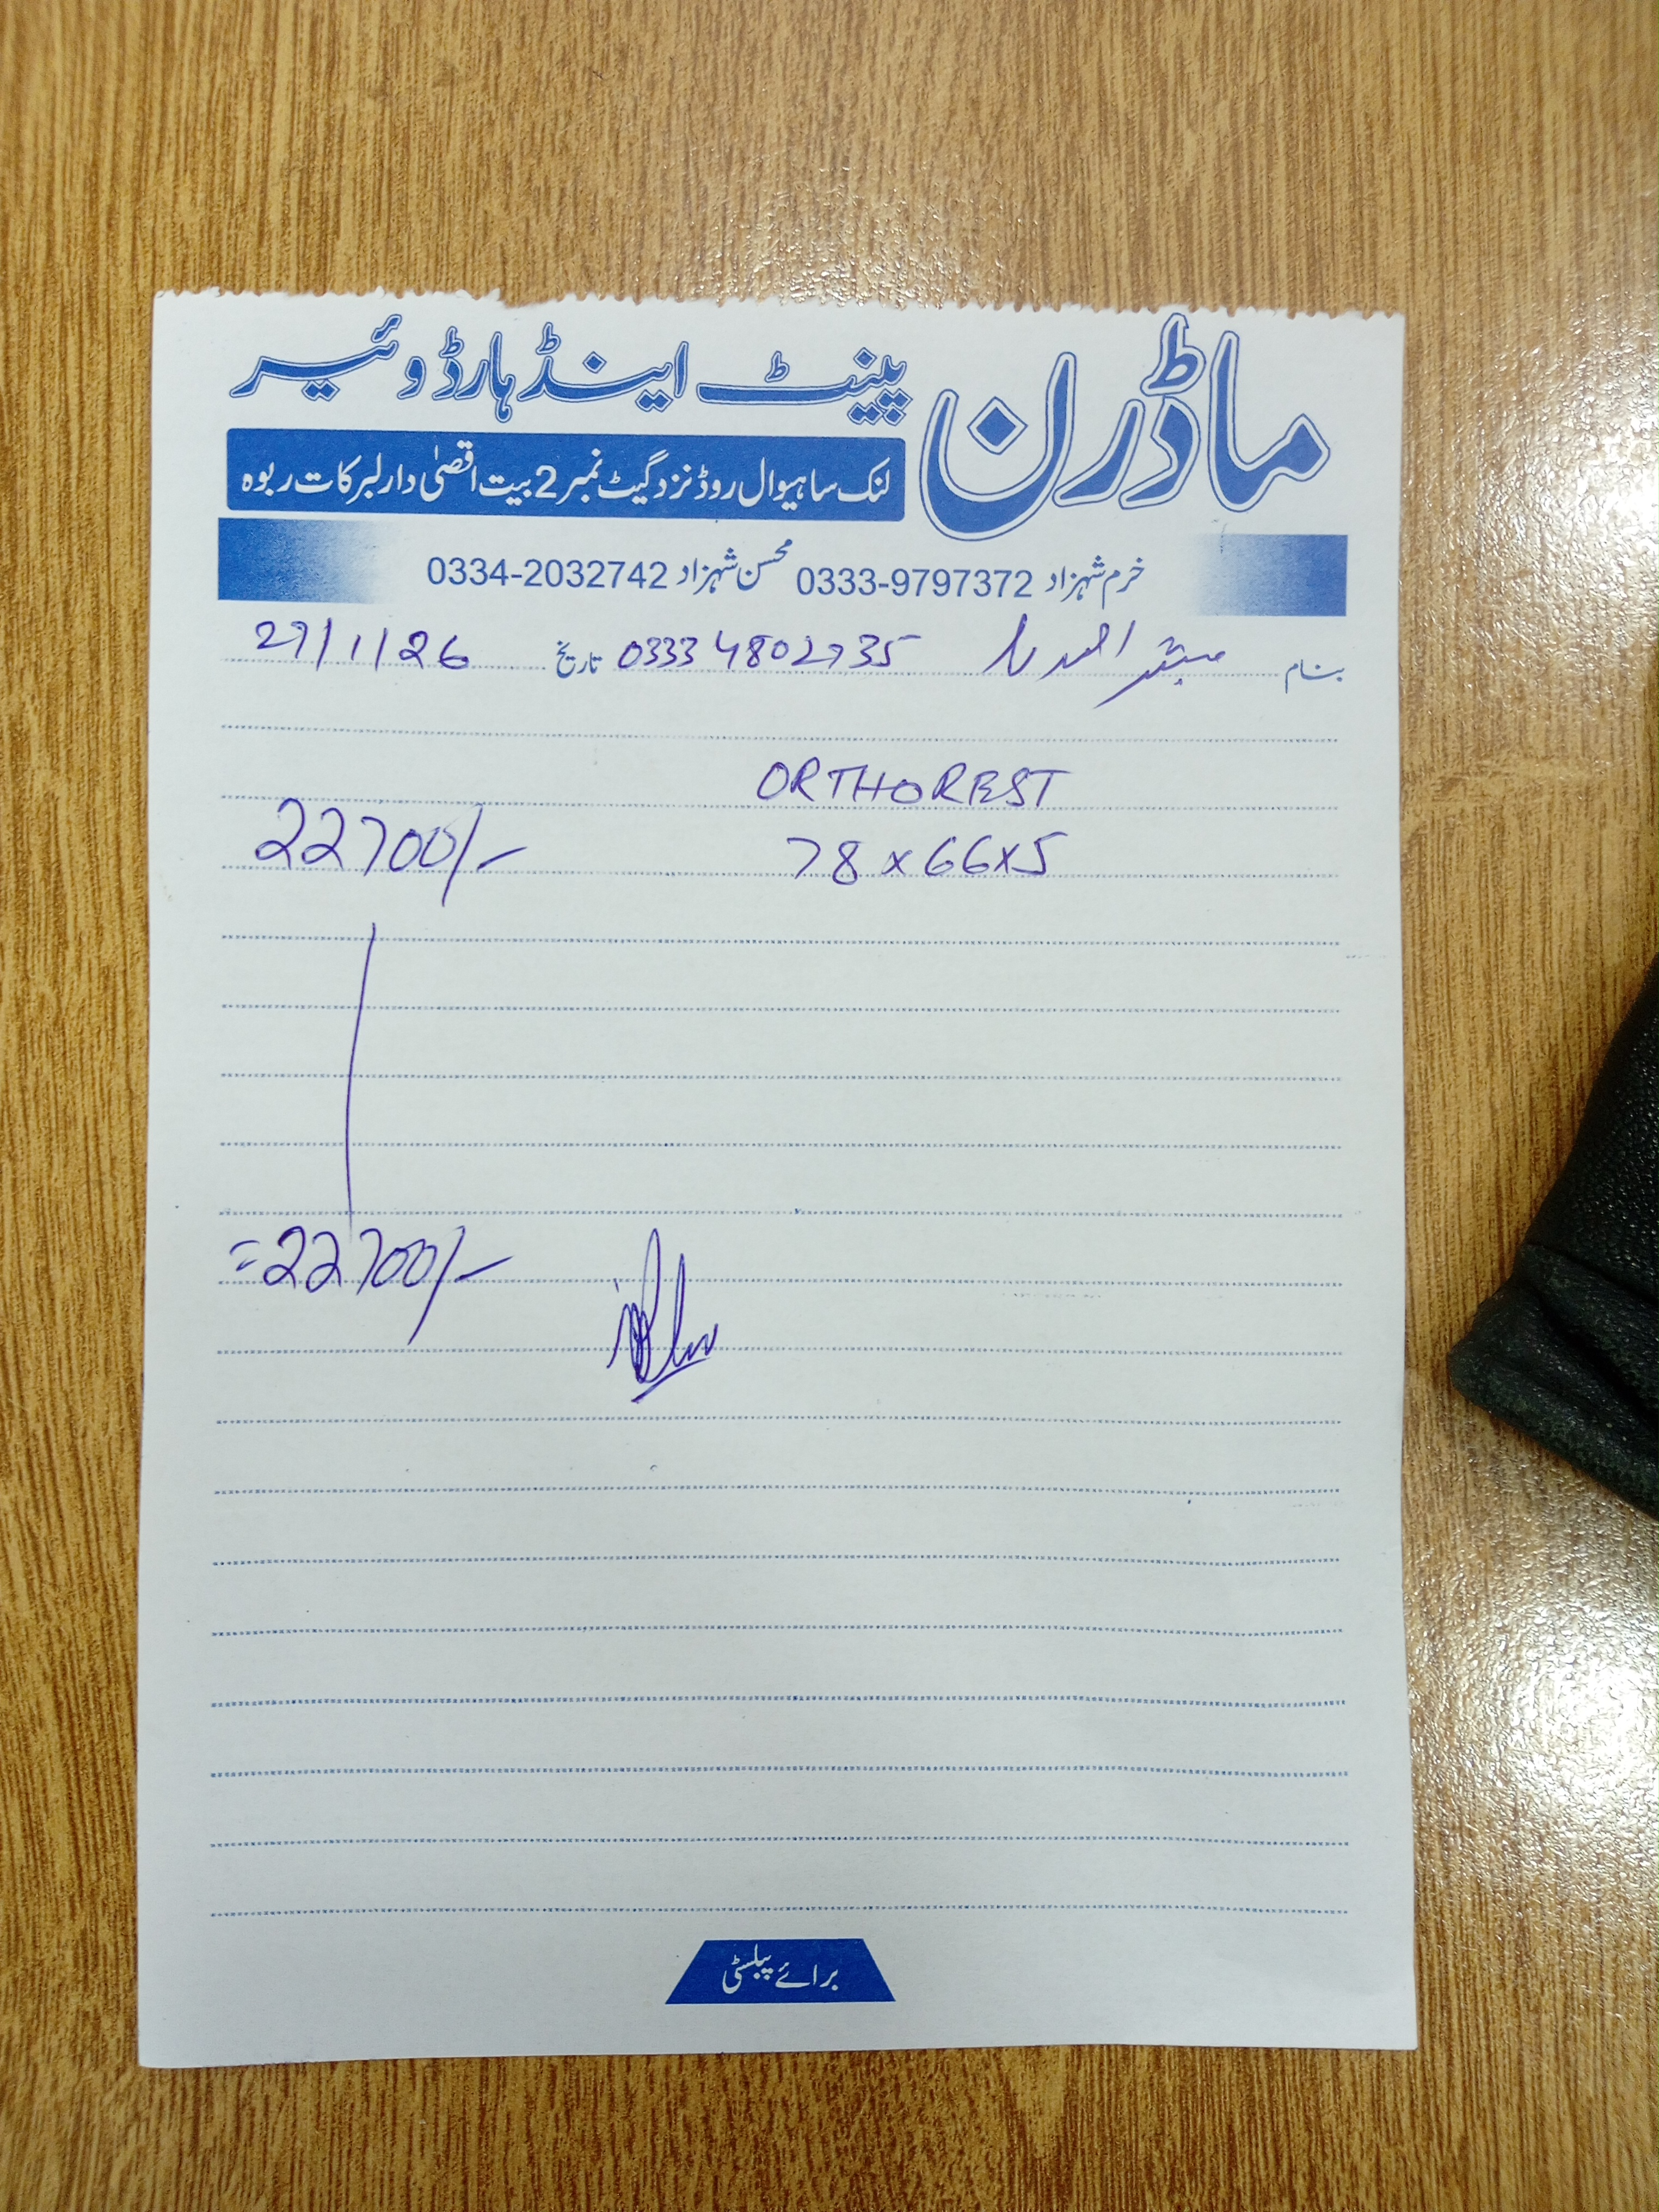 ماڈرن پینٹ اینڈ ہارڈوئیر
لنک ساہیوال روڈ نزد گیٹ نمبر 2 بیت اقصیٰ دارلبرکات ربوہ
خرم شہزاد 0333-9797372 محسن شہزاد 0334-2032742
بنام مبشر احمد 0333 4802735 تاریخ 27/1/26
ORTHOREST
78x66x5 22700/-
=22700/-
برائے پبلسٹی